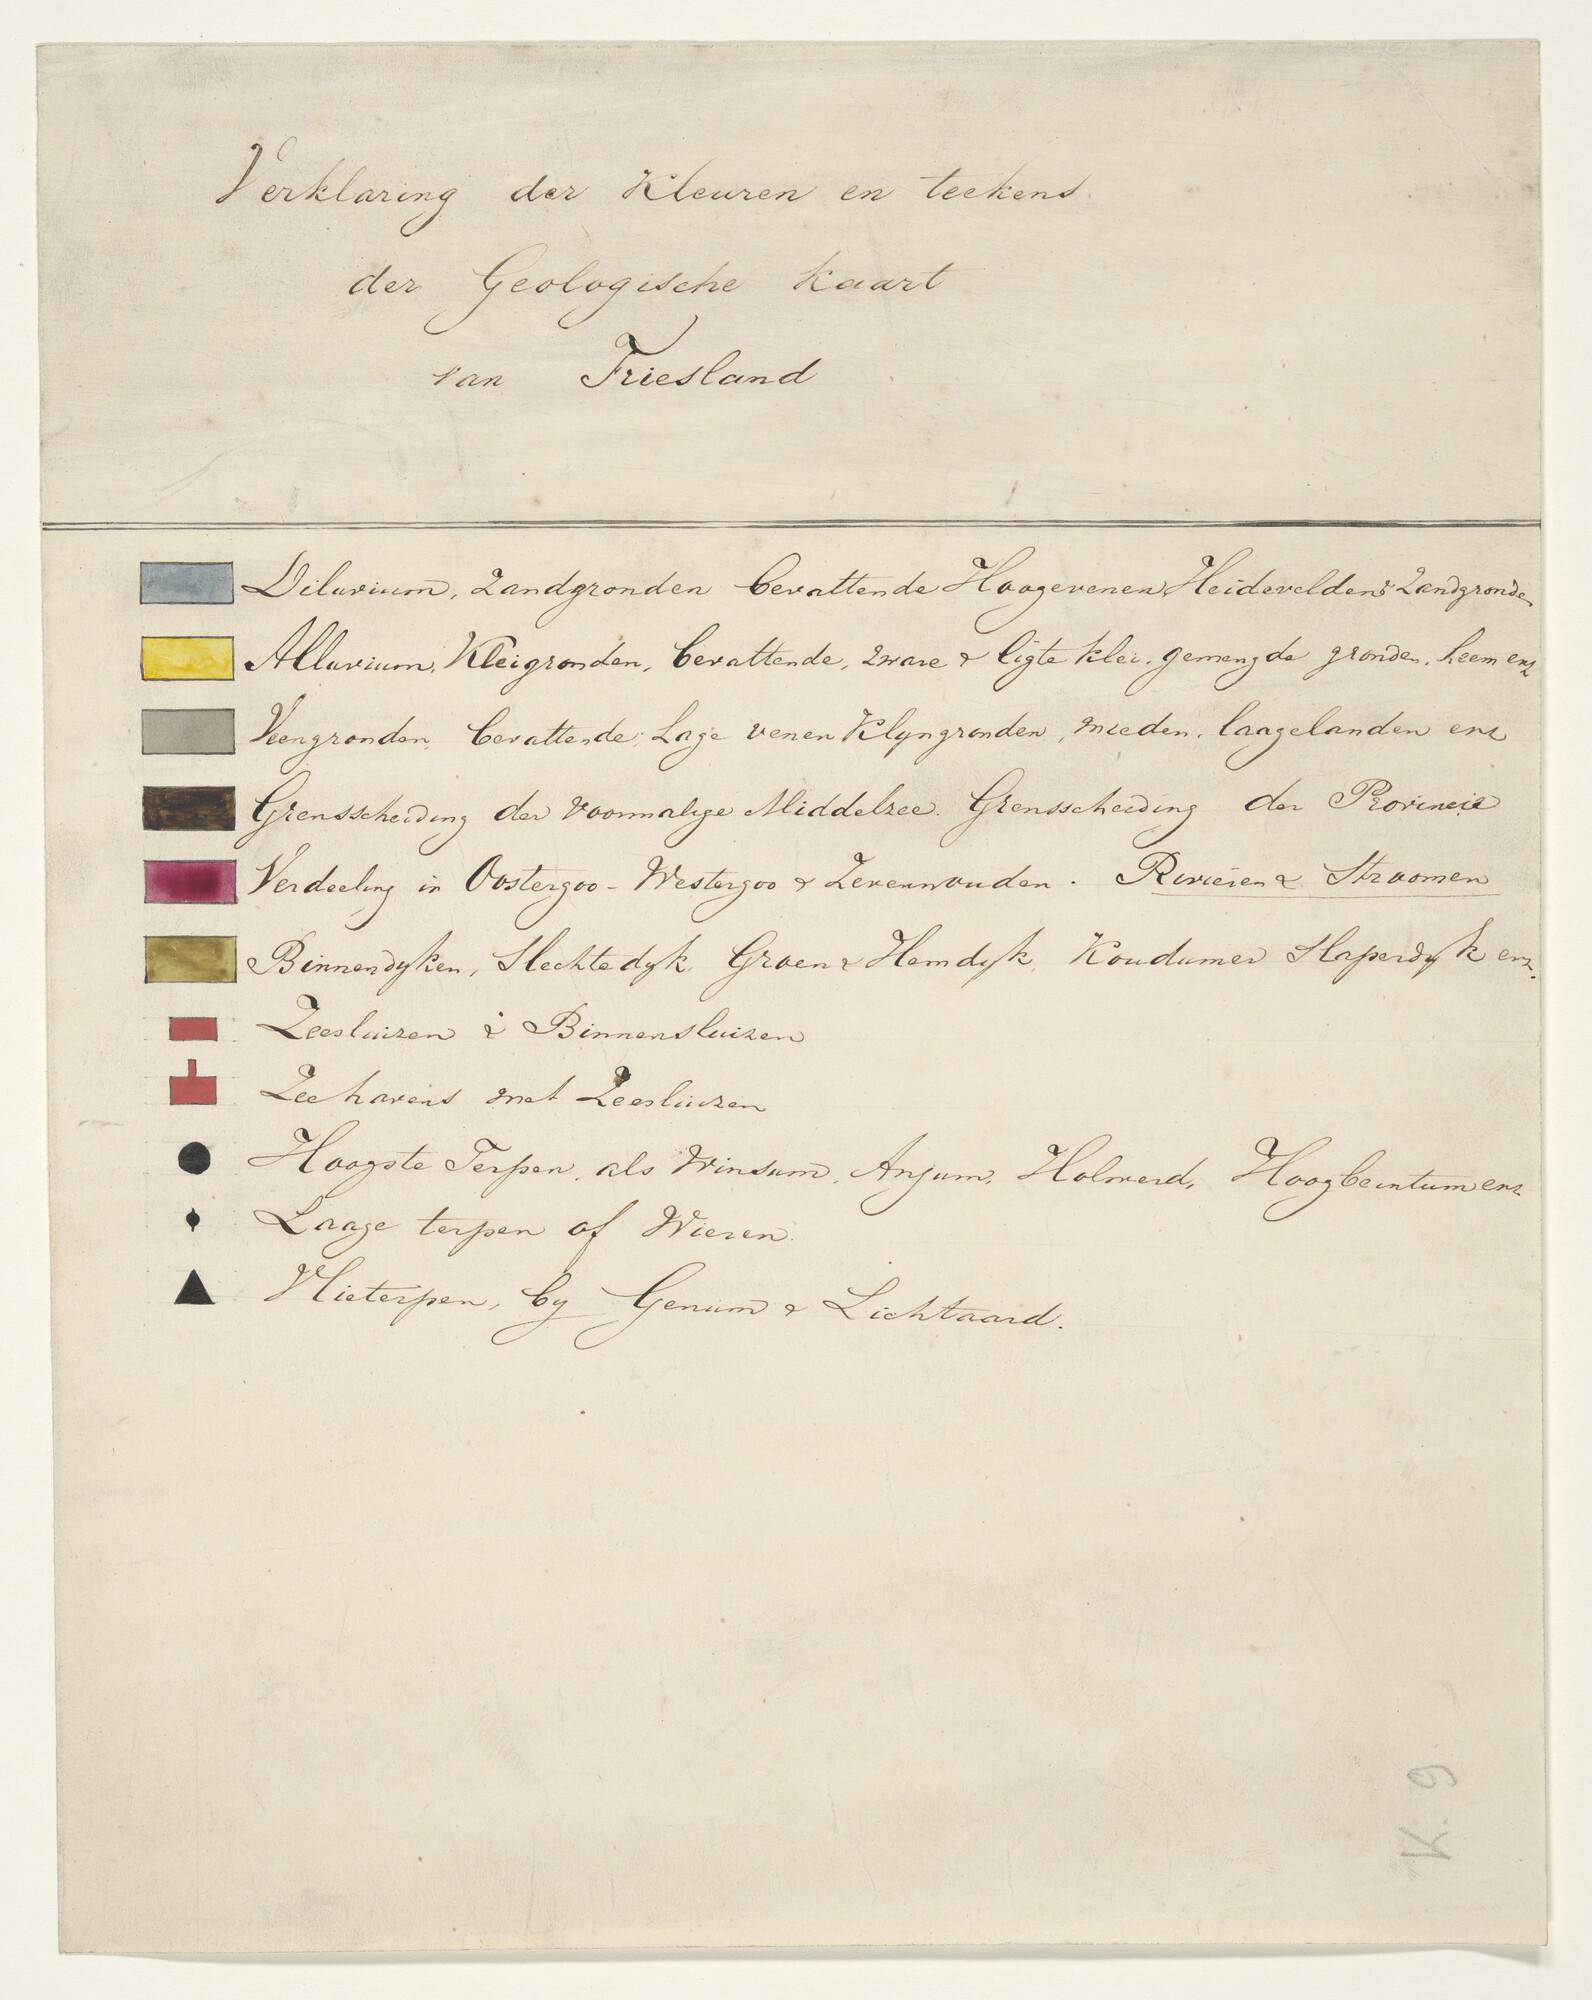 Verklaring der Kleuren en teekens
der Geologische kaart
van Friesland
Diluvium, Zandgronden bevattende Hoogevenen Heidevelden & Zandgronden
Alluvium, Kleigronden, bevattende, zware & ligte klei, gemengde gronden, leem enz
Veengronden, bevattende, Lage venen Klyngronden, mieden, laagelanden enz
Grensscheiding der voormalige Middelzee. Grensscheiding der Provincie
Verdeeling in Oostergoo - Westergoo & Zevenwouden. Rivieren & Stroomen
Binnendyken, Slechtedyk, Groen & Hemdyk, Koudumer Slaperdyk enz.
Zeesluizen & Binnensluizen
Zeehavens met Zeesluizen
Hoogste Terpen, als Winsum, Anjum, Holwerd, Hoogbeintum enz
Laage terpen of Wieren
Vlieterpen, by Genum & Lichtaard.
K. 9